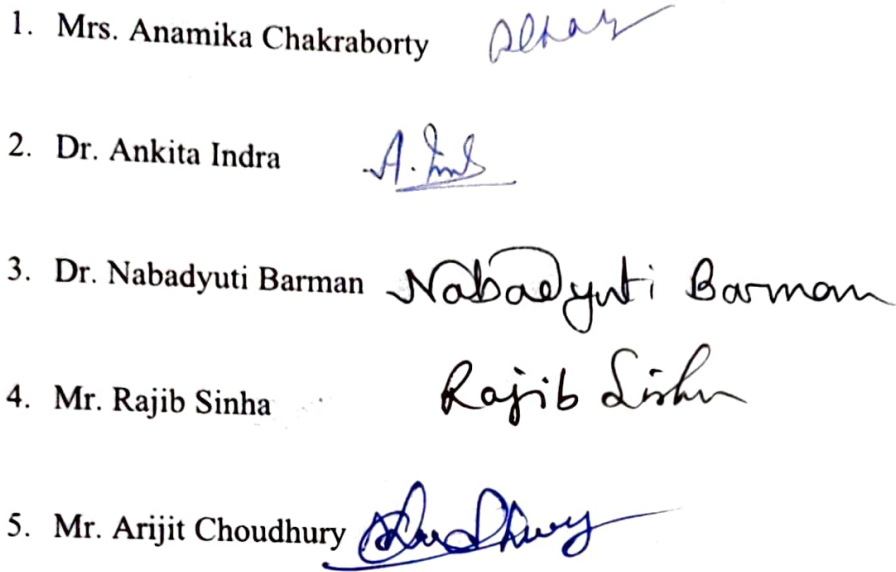 1. Mrs. Anamika Chakraborty
2. Dr. Ankita Indra A. Ind
3. Dr. Nabadyuti Barman Nabadyuti Barman
4. Mr. Rajib Sinha Rajib Sinha
5. Mr. Arijit Choudhury